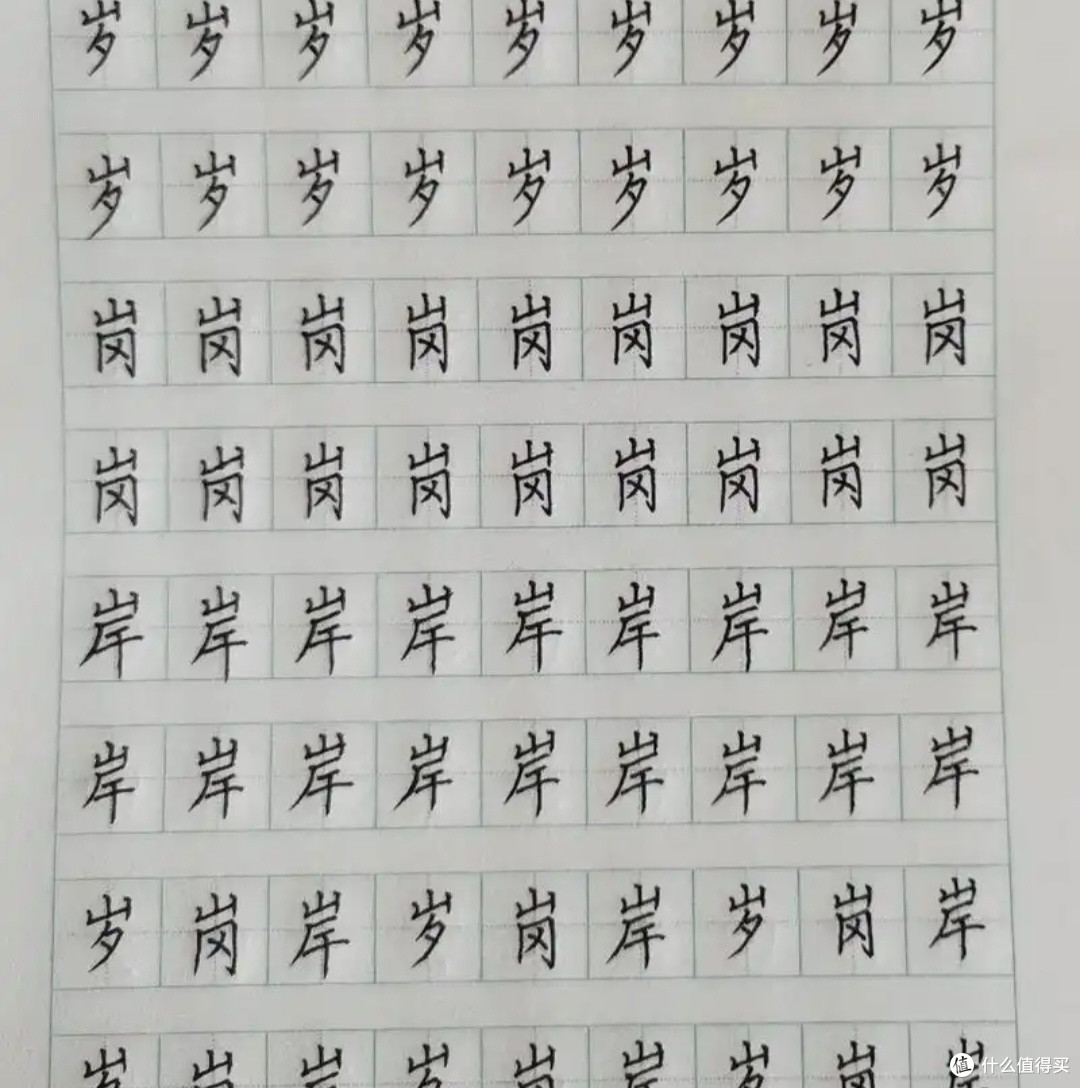 岁岁岁岁岁岁岁岁岁
岁岁岁岁岁岁岁岁岁
岗岗岗岗岗岗岗岗岗
岗岗岗岗岗岗岗岗岗
岸岸岸岸岸岸岸岸岸
岸岸岸岸岸岸岸岸岸
岁岗岸岁岗岸岁岗岸
岁岗岸岁岗岸岁岗
值 什么值得买